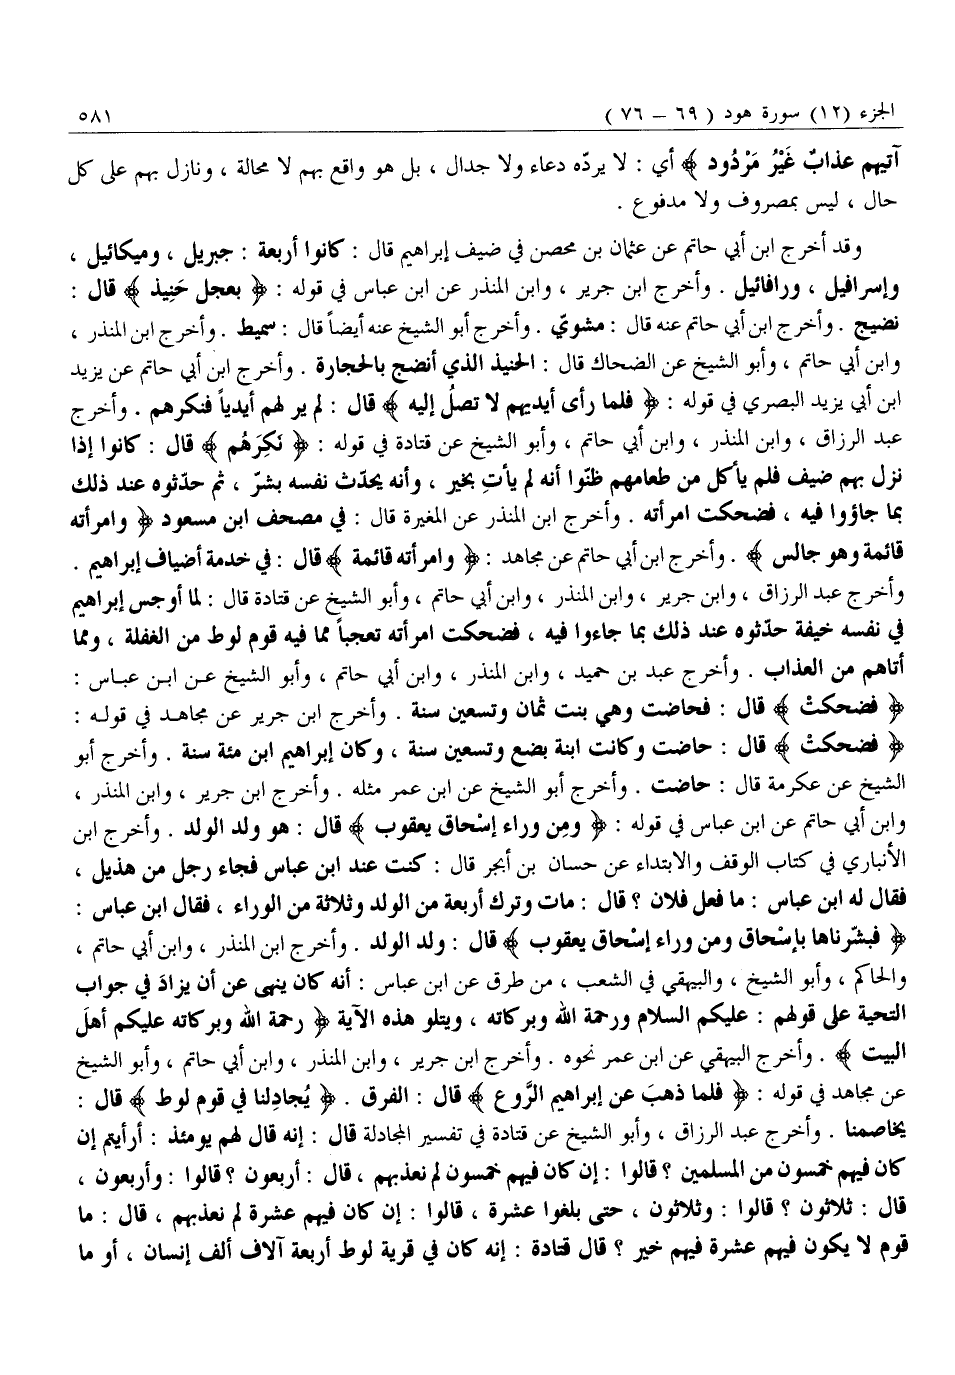 الجزء (١٢) سورة هود ( ٦٩ – ٧٦ ) ٥٨١
آتيهم عذابٌ غَيْرُ مَرْدُود ﴾ أي : لا يردّه دعاء ولا جدال ، بل هو واقع بهم لا محالة ، ونازل بهم على كل
حال ، ليس بمصروف ولا مدفوع .
وقد أخرج ابن أبي حاتم عن عثمان بن محصن في ضيف إبراهيم قال : كانوا أربعة : جبريل ، وميكائيل ،
وإسرافيل ، ورافائيل . وأخرج ابن جرير ، وابن المنذر عن ابن عباس في قوله : ﴿ بعجل حَنِيذ ﴾ قال :
نضيج . وأخرج ابن أبي حاتم عنه قال : مشويّ . وأخرج أبو الشيخ عنه أيضاً قال : سميط . وأخرج ابن المنذر ،
وابن أبي حاتم ، وأبو الشيخ عن الضحاك قال : الحنيذ الذي أنضج بالحجارة . وأخرج ابن أبي حاتم عن يزيد
ابن أبي يزيد البصري في قوله : ﴿ فلما رأى أيديهم لا تصلُ إليه ﴾ قال : لم ير لهم أيدياً فنكرهم . وأخرج
عبد الرزاق ، وابن المنذر ، وابن أبي حاتم ، وأبو الشيخ عن قتادة في قوله : ﴿ نَكِرَهُم ﴾ قال : كانوا إذا
نزل بهم ضيف فلم يأكل من طعامهم ظنّوا أنه لم يأتِ بخير ، وأنه يحدّث نفسه بشرّ ، ثم حدّثوه عند ذلك
بما جاؤوا فيه ، فضحكت امرأته . وأخرج ابن المنذر عن المغيرة قال : في مصحف ابن مسعود ﴿ وامرأته
قائمة وهو جالس ﴾ . وأخرج ابن أبي حاتم عن مجاهد : ﴿ وامرأته قائمة ﴾ قال : في خدمة أضياف إبراهيم .
وأخرج عبد الرزاق ، وابن جرير ، وابن المنذر ، وابن أبي حاتم ، وأبو الشيخ عن قتادة قال : لما أوجس إبراهيم
في نفسه خيفة حدّثوه عند ذلك بما جاءوا فيه ، فضحكت امرأته تعجباً مما فيه قوم لوط من الغفلة ، ومما
أتاهم من العذاب . وأخرج عبد بن حميد ، وابن المنذر ، وابن أبي حاتم ، وأبو الشيخ عن ابن عباس :
﴿ فضحكتْ ﴾ قال : فحاضت وهي بنت ثمان وتسعين سنة . وأخرج ابن جرير عن مجاهد في قوله :
﴿ فضحكتْ ﴾ قال : حاضت وكانت ابنة بضع وتسعين سنة ، وكان إبراهيم ابن مئة سنة . وأخرج أبو
الشيخ عن عكرمة قال : حاضت . وأخرج أبو الشيخ عن ابن عمر مثله . وأخرج ابن جرير ، وابن المنذر ،
وابن أبي حاتم عن ابن عباس في قوله : ﴿ ومِن وراء إسْحاق يعقوب ﴾ قال : هو ولد الولد . وأخرج ابن
الأنباري في كتاب الوقف والابتداء عن حسان بن أبجر قال : كنت عند ابن عباس فجاء رجل من هذيل ،
فقال له ابن عباس : ما فعل فلان ؟ قال : مات وترك أربعة من الولد وثلاثة من الوراء ، فقال ابن عباس :
﴿ فبشّرناها بإسْحاق ومن وراء إسْحاق يعقوب ﴾ قال : ولد الولد . وأخرج ابن المنذر ، وابن أبي حاتم ،
والحاكم ، وأبو الشيخ ، والبيهقي في الشعب ، من طرق عن ابن عباس : أنه كان ينهى عن أن يزادَ في جواب
التحية على قولهم : عليكم السلام ورحمة الله وبركاته ، ويتلو هذه الآية ﴿ رحمة الله وبركاته عليكم أهلَ
البيت ﴾ . وأخرج البيهقي عن ابن عمر نحوه . وأخرج ابن جرير ، وابن المنذر ، وابن أبي حاتم ، وأبو الشيخ
عن مجاهد في قوله : ﴿ فلما ذهبَ عن إبراهيم الرَّوع ﴾ قال : الفرق . ﴿ يُجادِلنا في قوم لوط ﴾ قال :
يخاصمنا . وأخرج عبد الرزاق ، وأبو الشيخ عن قتادة في تفسير المجادلة قال : إنه قال لهم يومئذ : أرأيتم إن
كان فيهم خمسون من المسلمين ؟ قالوا : إن كان فيهم خمسون لم نعذبهم ، قال : أربعون ؟ قالوا : وأربعون ،
قال : ثلاثون ؟ قالوا : وثلاثون ، حتى بلغوا عشرة ، قالوا : إن كان فيهم عشرة لم نعذبهم ، قال : ما
قوم لا يكون فيهم عشرة فيهم خير ؟ قال قتادة : إنه كان في قرية لوط أربعة آلاف ألف إنسان ، أو ما